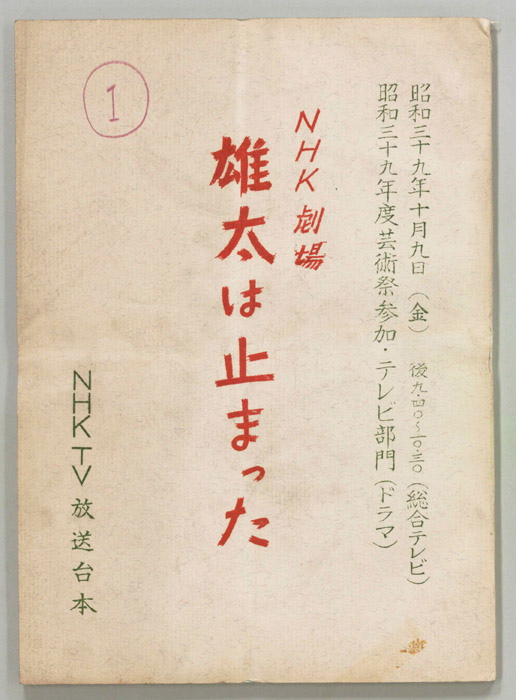 昭和三十九年十月九日(金) 後九・四〇〜一〇・三〇(総合テレビ)
昭和三十九年度芸術祭参加・テレビ部門(ドラマ)
NHK劇場
雄太は止まった
1
NHKTV放送台本